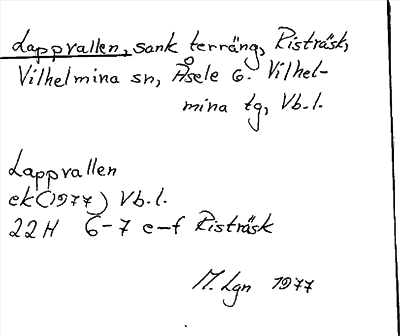 Lappvallen, sank terräng, Risträsk,
Vilhelmina sn, Åsele G. Vilhel-
mina tg, Vb.l.
Lappvallen
ek (1977) Vb.l.
22H 6-7 e-f Risträsk
M. Lgn 1977